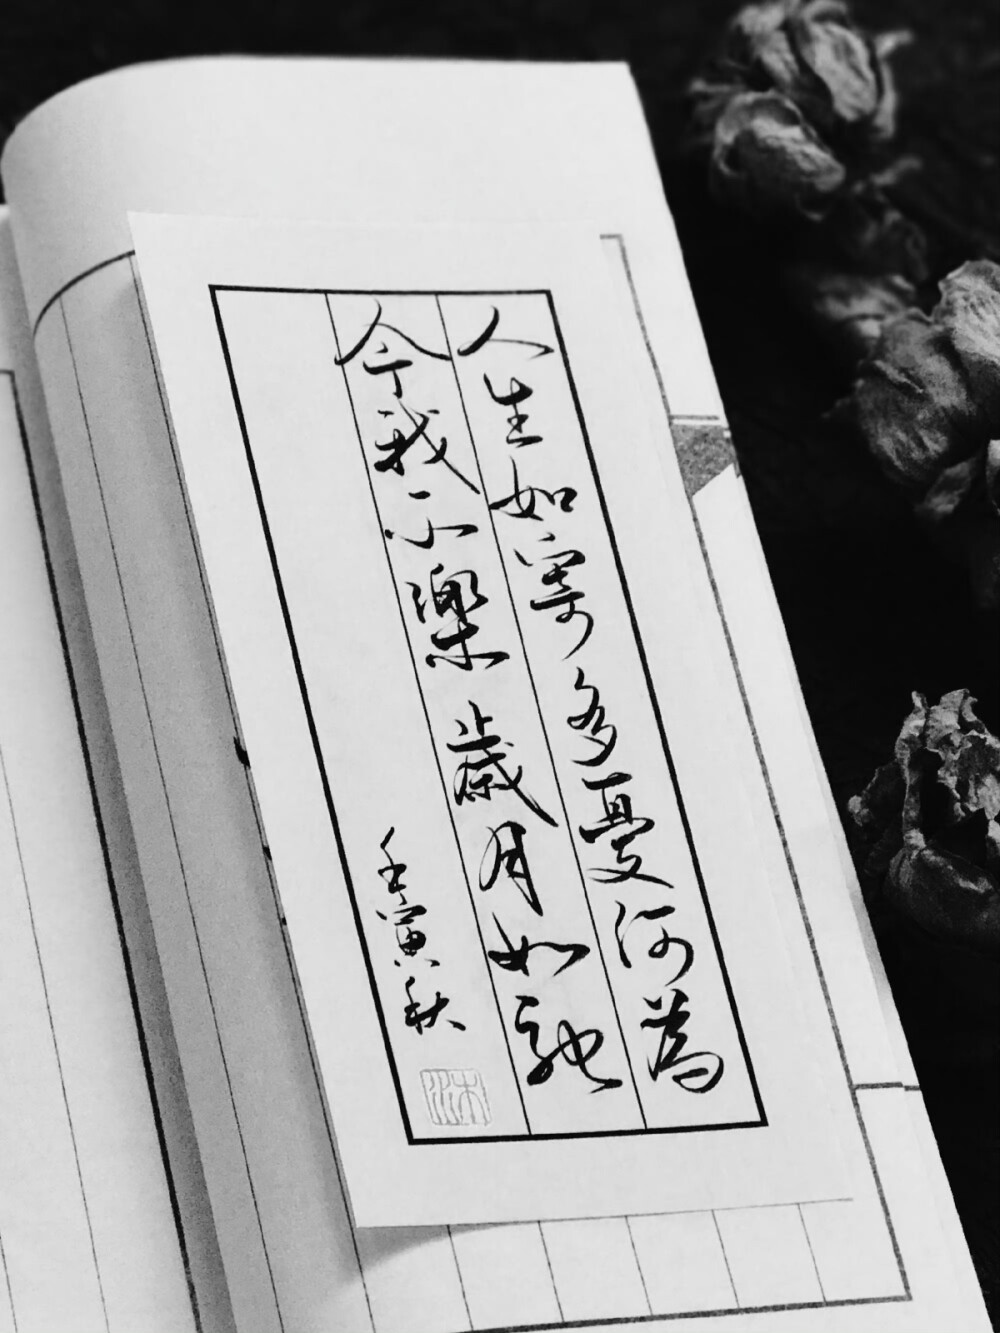 人生如寄多憂何為
今我不樂歲月如馳
壬寅秋